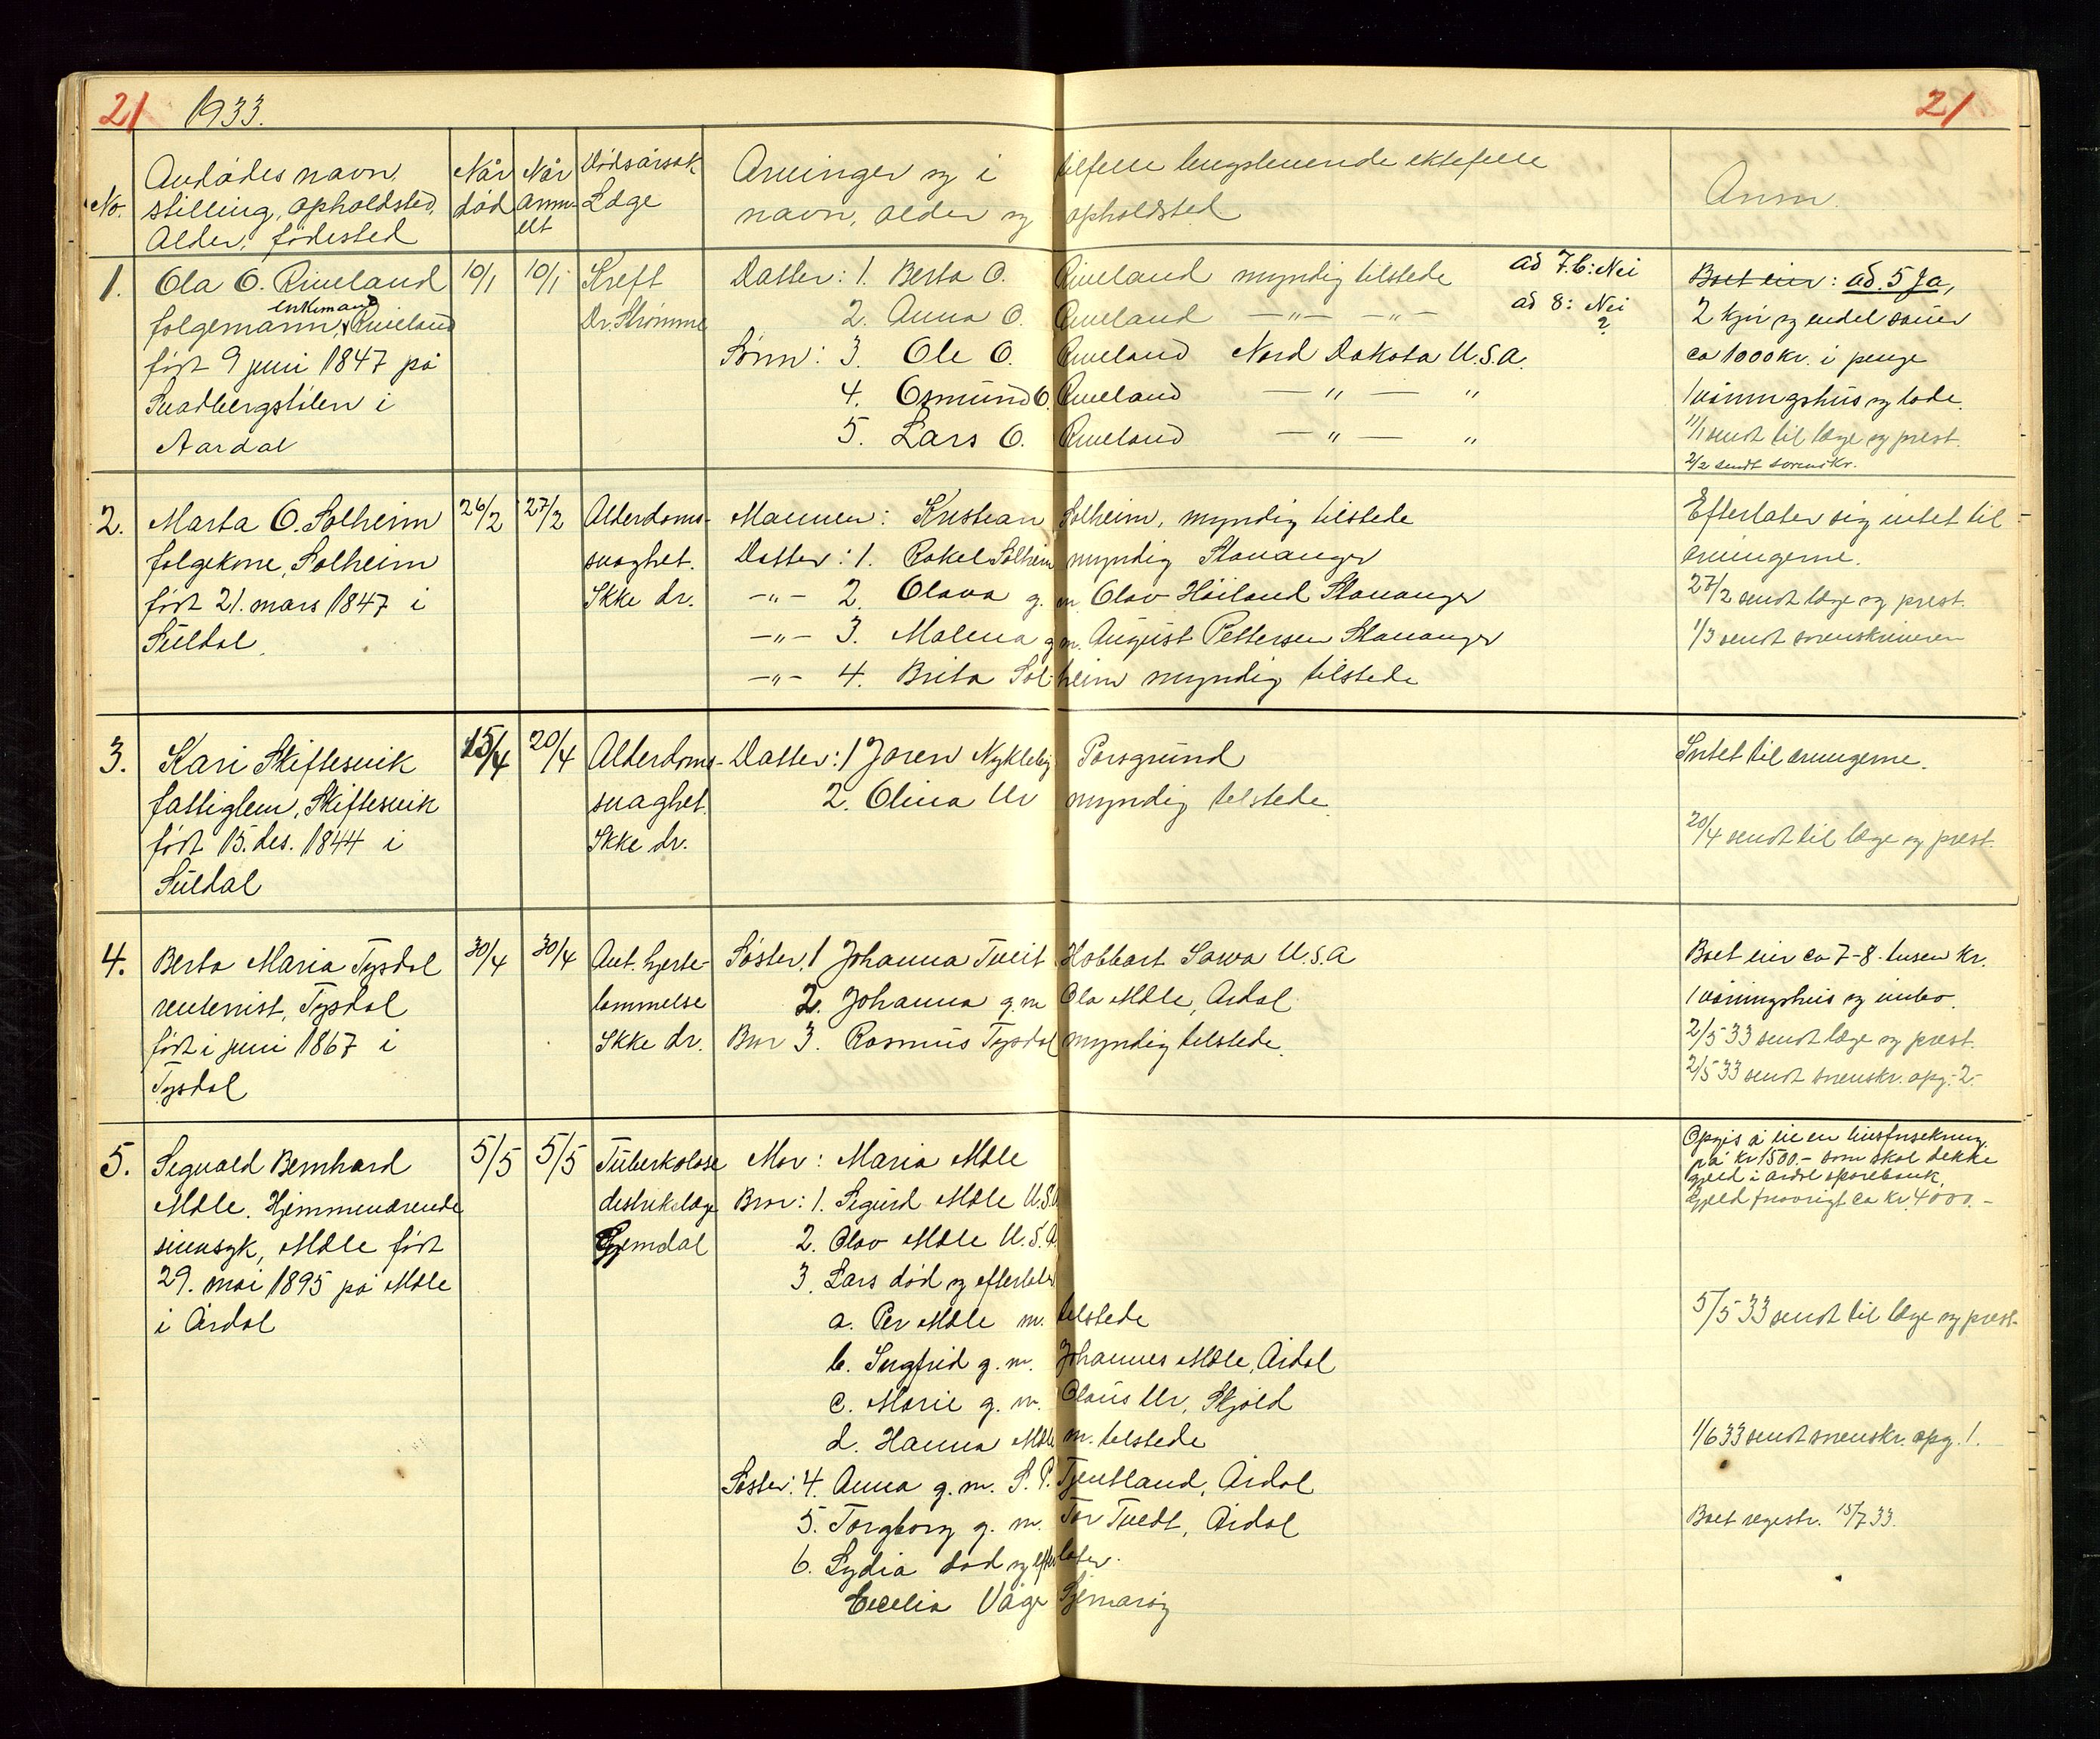 21 1933. 21
No. Avdødes navn, stilling, opholdsted, Alder, fødested
Når død
Når anmeldt
Dødsårsak Læge
Arvinger og i tilfelle lengstlevende ektefelle
navn, alder og opholdsted
Anm.
1. Ola O. Riveland 10/1 10/1 Kreft Datter: 1. Berta O. Riveland myndig tilstede ad 7.b: Nei Boet eier: ad. 5 Ja,
enkemand
folgemann, Riveland Dr. Strømme 2. Anna O. Riveland —„— —„— ad 8: Nei 2 kjør og endel sauer
?
født 9 juni 1847 på Sønn: 3. Ole O. Riveland Nord Dakota U.S.A. ca 1000 kr. i penge
Svadbergstølen i 4. Osmund O. Riveland —„— „ 1 våningshus og løde.
Aardal 5. Lars O. Riveland —„— „ 11/1 sendt til læge og prest.
2/2 sendt sorenskr.
2. Marta O. Solheim 26/2 27/2 Alderdoms- Mannen: Kristian Solheim, myndig tilstede Efterlater sig intet til
folgekone, Solheim svaghet. Datter: 1. Rakel Solheim myndig Stavanger arvingerne.
født 21. mars 1847 i Ikke dr. —„— 2. Olava g. m. Olav Høiland Stavanger 27/2 sendt læge og prest.
Suldal. —„— 3. Malena g. m. August Pettersen Stavanger 1/3 sendt sorenskriveren
—„— 4. Brita Solheim myndig tilstede
3. Kari Skiftesvik 15/4 20/4 Alderdoms- Datter: 1 Joren Nykleby Porsgrund Intet til arvingerne.
fattiglem, Skiftesvik svaghet. 2. Olina Ur myndig tilstede.
født 15. des. 1844 i Ikke dr. 20/4 sendt til læge og prest.
Suldal
4. Berta Maria Tysdal 30/4 30/4 Ant. hjerte- Søster. 1 Johanna Tveit Hobbart Iowa U.S.A Boet eier ca 7-8 tusen kr.
rentenist, Tysdal lammelse 2. Johanna g. m Ola Mæle, Årdal 1 våningshus og innbo.
født i juni 1867 i Ikke dr. Bror 3. Rasmus Tysdal myndig tilstede. 2/5 33 sendt læge og prest.
Tysdal 2/5 33 sendt sorenskr. opg. 2.
5. Sigvald Bernhard 5/5 5/5 Tuberkolose Mor: Maria Mæle Opgis å eie en livsforsekring
på kr 1500.- som skal dekke
gjeld i Årdal sparebank,
Mæle. Hjemmeværende distrikslæge Bror: 1. Sigurd Mæle U.S.A Gjeld forøvrigt ca kr. 4000.-
sinnsyk, Mæle født Gjemdal 2. Olav Mæle U.S.A.
29. mai 1895 på Mæle 3. Lars død og efterlater
i Årdal a. Per Mæle m. tilstede 5/5 33 sendt til læge og prest.
b. Ingfrid g. m. Johannes Mæle, Årdal
c. Marie g. m. Olaus Ur, Skjold
d. Hanna Mæle m. tilstede 1/6 33 sendt sorenskr. opg. 1.
Søster: 4. Anna g. m. S. P. Tjentland, Årdal
5. Torgborg g. m. Tor Tvedt, Årdal Boet registr. 15/7 33.
6. Lydia død og efterlater.
Cecelia Våge Sjernarøy